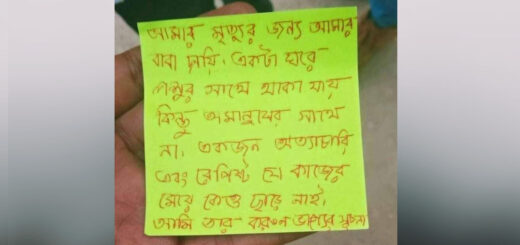 আমার মৃত্যুর জন্য আমার
বাবা দায়ি। একটা ঘরে
পশুর সাথে থাকা যায়
কিন্তু অমানুষের সাথে
না। একজন অত্যাচারি
এবং রেপিষ্ট যে কাজের
মেয়ে কেও ছাড়ে নাই।
আমি তার করুন ভাগ্যের